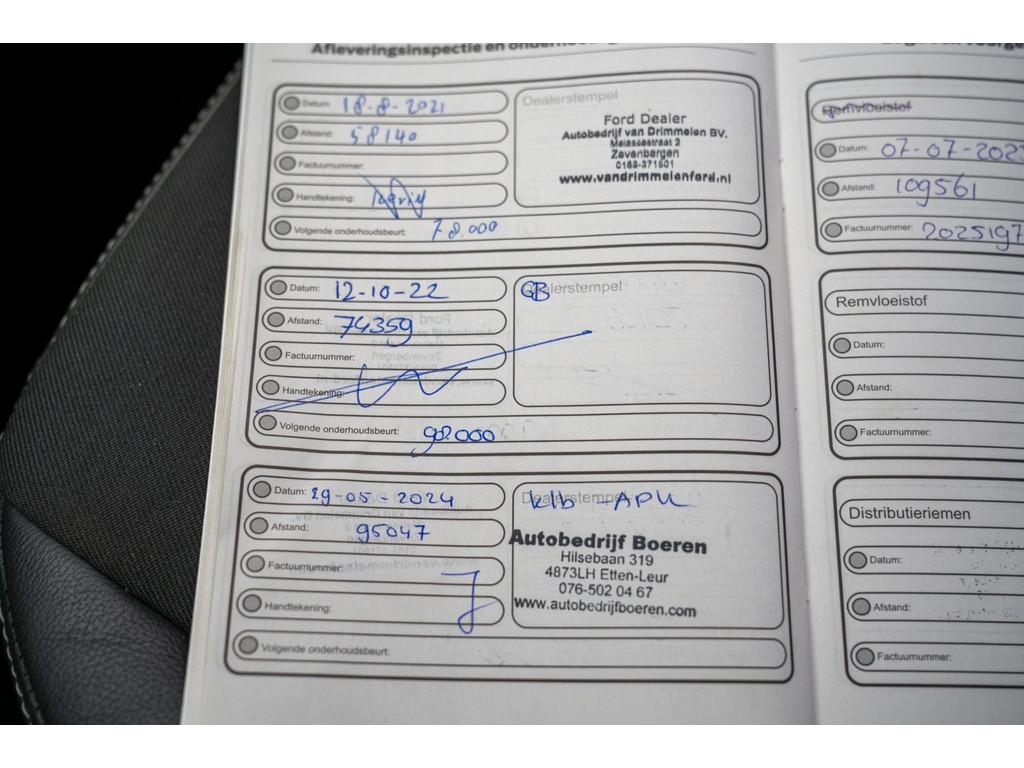 Afleveringsinspectie en
Datum: 18-8-2021
Afstand: 58140
Factuurnummer:
Handtekening:
Volgende onderhoudsbeurt: 78.000
Dealerstempel
Ford Dealer
Autobedrijf van Drimmelen BV.
Melassestraat 2
Zevenbergen
0168-371501
www.vandrimmelenford.nl
Datum: 12-10-22
Afstand: 74359
Factuurnummer:
Handtekening:
Volgende onderhoudsbeurt: 98.000
Dealerstempel
GB
Datum: 29-05-2024
Afstand: 95047
Factuurnummer:
Handtekening:
Volgende onderhoudsbeurt:
Dealerstempel
klb - APK
Autobedrijf Boeren
Hilsebaan 319
4873LH Etten-Leur
076-502 04 67
www.autobedrijfboeren.com
Remvloeistof
Datum: 07-07-202
Afstand: 109561
Factuurnummer: 2025197
Remvloeistof
Datum:
Afstand:
Factuurnummer:
Distributieriemen
Datum:
Afstand:
Factuurnummer: